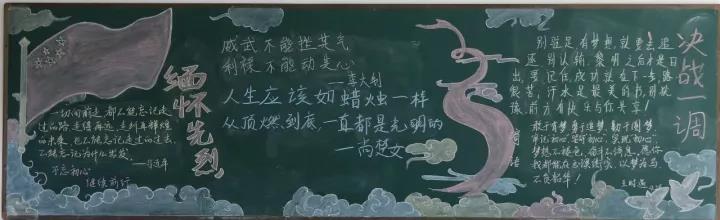 缅怀先烈
一切向前走,都不能忘记走
过的路,走得再远,走到再辉煌
的未来,也不能忘记走过的过去,
不能忘记为什么出发。
不忘初心
继续前行
威武不能挫其气
利禄不能动其心
李大钊
人生应该如蜡烛一样
从顶燃到底,一直都是光明的
一萧楚女
决战一调
别驻足,有梦想就要去追
逐,别认输,黎明之后才是日
出,要记住,成功就在下一步,路
很苦,汗水是最美的书
前方有快乐与你共享!
敢于有梦,勇于追梦,勤于圆梦
牢记初心,坚守初心,实现初心
梦想不褪色,奋斗不停息,愿你
以梦为马
不负韶华!